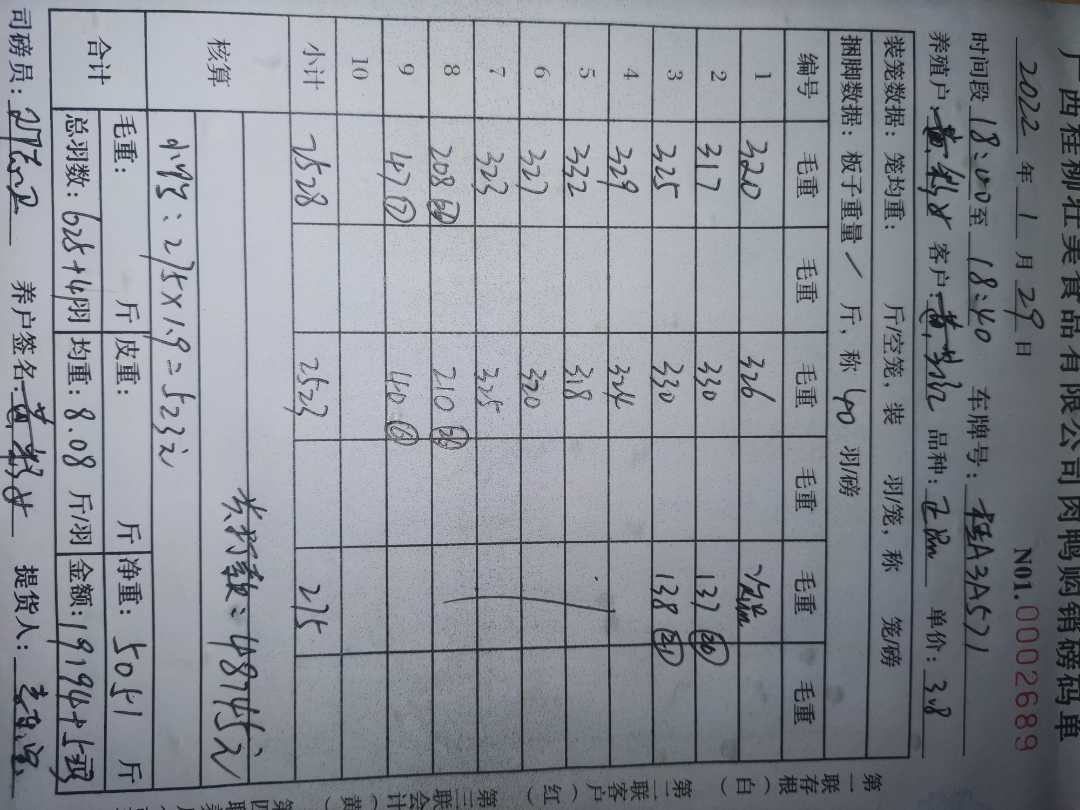 广西桂柳壮美食品有限公司肉鸭购销磅码单
2022 年 1 月 29 日 N01. 0002689
时间段 18:00 至 18:40 车牌号: 桂A3A571
养殖户: 客户: 品种: 单价: 3.8
装笼数据: 笼均重: 斤/空笼, 装 羽/笼, 称 笼/磅
捆脚数据: 板子重量 / 斤, 称 40 羽/磅
编号 毛重 毛重 毛重 毛重 毛重 毛重
1 320 326
2 317 330 137
3 325 330 138
4 329 324
5 332 318
6 327 320
7 323 325
8 208 210
9 47 40
10
小计 2528 2523 275
核算
小鸭: 275×1.9=523元
合计 毛重: 斤 皮重: 斤 净重: 5051 斤
总羽数: 625+4 均重: 8.08 斤/羽 金额: 19194+
司磅员: 养户签名: 提货人:
第一联存根(白)
第二联客户(红)
第三联会计(黄)